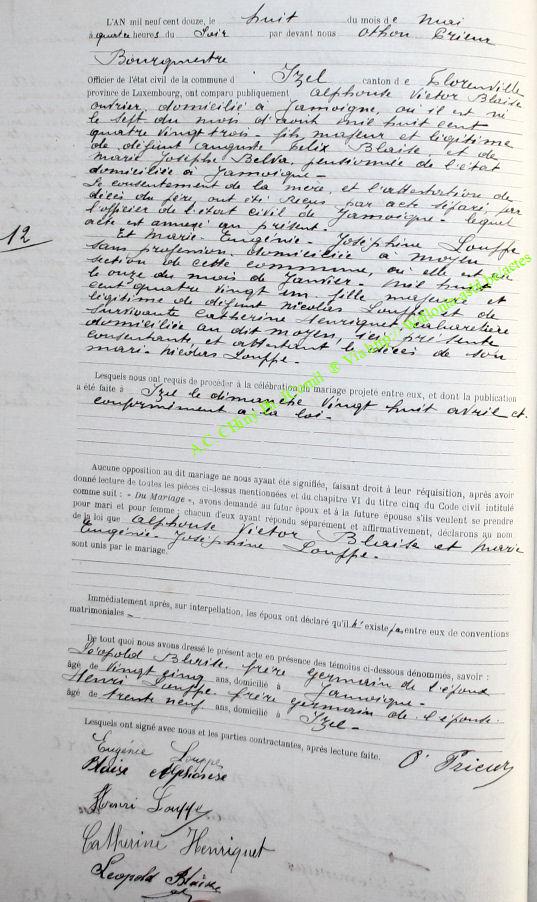 L'AN mil neuf cent douze, le huit du mois de mai
à quatre heures du Soir par devant nous Othon Prieur
Bourgmestre
Officier de l'état civil de la commune d Izel canton de Florenville
province de Luxembourg, ont comparu publiquement Alphonse Victor Blaise
ouvrier, domicilié à Jamoigne, où il est né
le sept du mois d'août mil huit cent
quatre vingt trois - fils majeur et légitime
de défunt Auguste Félix Blaise, et de
Marie Josephe Belva, pensionnée de l'état
domiciliée à Jamoigne -
Le consentement de la mère, et l'attestation de
décès du père, ont été reçus par acte séparé, par
l'officier de l'état civil de Jamoigne - lequel
acte est annexé au présent.
12
Et Marie - Eugénie - Joséphine Louppe
sans profession - domiciliée à Moyen
section de cette commune, où elle est née
le onze du mois de Janvier - mil huit
cent quatre vingt un - fille majeure et
légitime de défunt Nicolas Louppe et de
survivante Catherine Henriquet, cabaretière
domiciliée au dit Moyen, ici présente
consentante, et attestant le décès de son
mari - Nicolas Louppe -
Lesquels nous ont requis de procéder à la célébration du mariage projeté entre eux, et dont la publication
a été faite à Izel le dimanche vingt huit avril et
conformément à la loi -
Aucune opposition au dit mariage ne nous ayant été signifiée, faisant droit à leur réquisition, après avoir
donné lecture de toutes les pièces ci-dessus mentionnées et du chapitre VI du titre cinq du Code civil intitulé
comme suit : « Du Mariage », avons demandé au futur époux et à la future épouse s'ils veulent se prendre
pour mari et pour femme ; chacun d'eux ayant répondu séparément et affirmativement, déclarons au nom
de la loi que Alphonse Victor Blaise et Marie
Eugénie - Joséphine Louppe -
sont unis par le mariage.
Immédiatement après, sur interpellation, les époux ont déclaré qu'il n'existe pas entre eux de conventions
matrimoniales -
De tout quoi nous avons dressé le présent acte en présence des témoins ci-dessous dénommés, savoir :
Léopold Blaise - frère germain de l'époux
âgé de vingt cinq ans, domicilié à Jamoigne -
Henri Louppe - frère germain de l'épouse -
âgé de trente neuf ans, domicilié à Izel -
Lesquels ont signé avec nous et les parties contractantes, après lecture faite.
Eugénie Louppe
O Prieur
Blaise Alphonse
Henri Louppe
Catherine Henriquet
Léopold Blaise